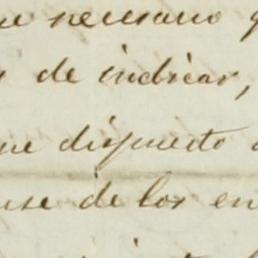 necesario
de indicar,
ue dispuesto
use de los en